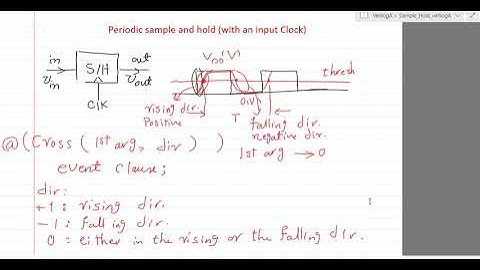 VerilogA - Sample_Hold_verilogA
Periodic sample and hold (with an input Clock)
in S/H out
Vin Vout
CLK
VDD (V)
thresh
0(V)
rising dir. T falling dir.
Positive negative dir.
@(Cross(1st arg, dir)) 1st arg → 0
event clause;
dir:
+1: rising dir.
-1: falling dir.
0: either in the rising or the falling dir.